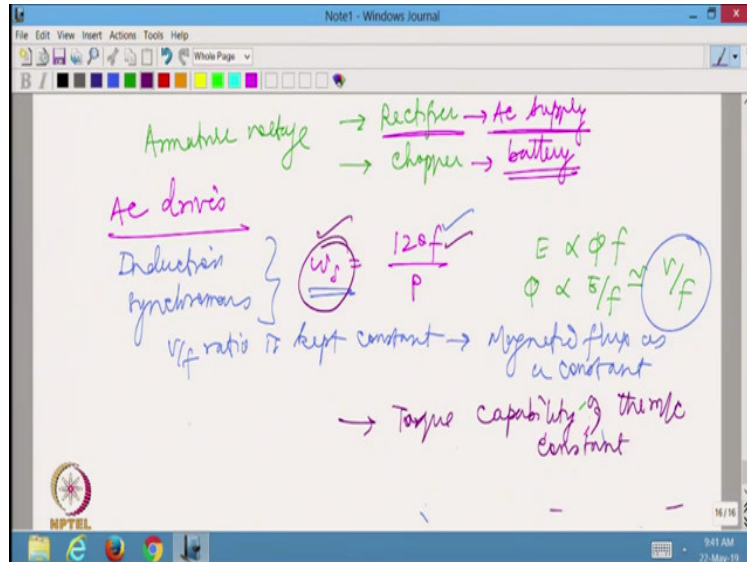 Note1 - Windows Journal
File Edit View Insert Actions Tools Help
Whole Page
B I
Armature voltage → Rectifier → Ac supply
→ chopper → battery
Ac drives
Induction
synchronous
ωs = 120f / P
E ∝ Φ f
Φ ∝ E/f ≅ V/f
V/f ratio is kept constant → Magnetic flux as
a constant
→ Torque capability of the m/c
constant
NPTEL
16/16
9:41 AM
22-May-19